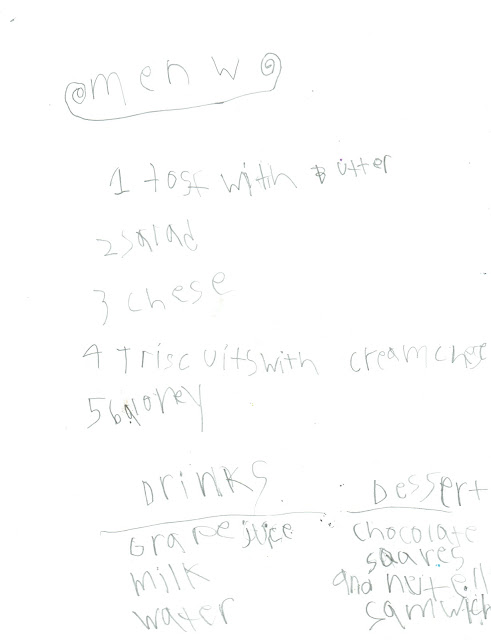 menw
1 tost with butter
2 salad
3 chese
4 Triscuits with creamchese
5 baloney
Drinks
Grape juice
milk
water
Dessert
chocolate
sqares
and nutell
samwich